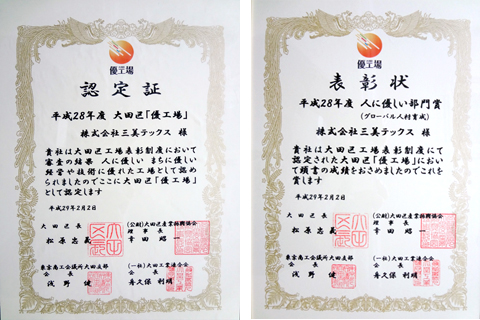 優工場
認定証
平成28年度 大田区「優工場」
株式会社三美テックス 様
貴社は大田区工場表彰制度において
審査の結果 人に優しい まちに優しい
経営や技術に優れた工場として認め
られましたのでここに大田区「優工場」
として認定します
平成29年2月2日
大田区長
松原忠義
(公財)大田区産業振興協会
理事長
幸田昭一
東京商工会議所大田支部
会長
浅野健
(一社)大田工業連合会
会長
舟久保利明
優工場
表彰状
平成28年度 人に優しい部門賞
(グローバル人材育成)
株式会社三美テックス 様
貴社は大田区工場表彰制度にて
認定された大田区「優工場」におい
て頭書の成績をおさめましたのでこれを
賞します
平成29年2月2日
大田区長
松原忠義
(公財)大田区産業振興協会
理事長
幸田昭一
東京商工会議所大田支部
会長
浅野健
(一社)大田工業連合会
会長
舟久保利明